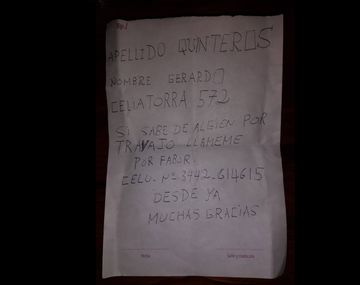 APELLIDO QUNTEROS
NOMBRE GERARDO
CELIATORRA 572
SI SABE DE ALGIEN POR
TRAVAJO LLAMEME
POR FABOR.
CELU. Nº 3442-614615
DESDE YA
MUCHAS GRACIAS
Fecha